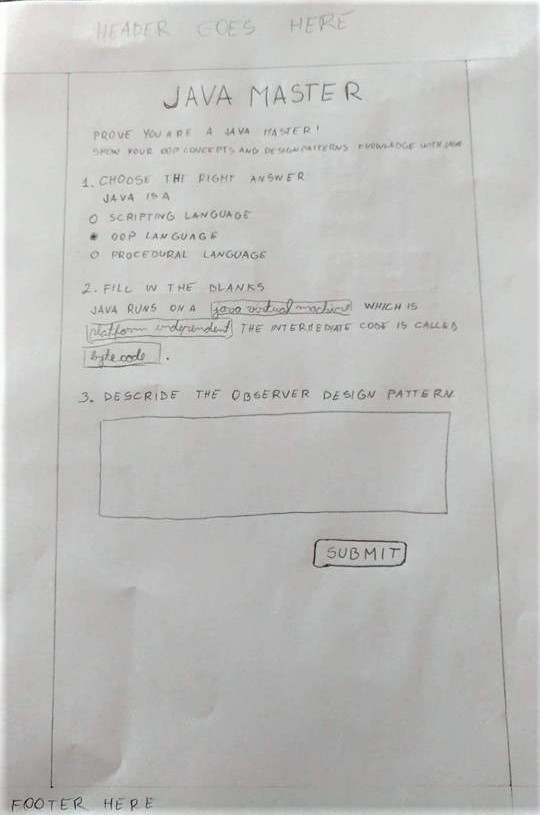 HEADER GOES HERE
JAVA MASTER
PROVE YOU ARE A JAVA MASTER!
SHOW YOUR OOP CONCEPTS AND DESIGN PATTERNS KNOWLEDGE WITH JAVA
1. CHOOSE THE RIGHT ANSWER
JAVA IS A
SCRIPTING LANGUAGE
OOP LANGUAGE
PROCEDURAL LANGUAGE
2. FILL IN THE BLANKS
JAVA RUNS ON A java virtual machine WHICH IS
platform independent THE INTERMEDIATE CODE IS CALLED
byte code.
3. DESCRIBE THE OBSERVER DESIGN PATTERN
SUBMIT
FOOTER HERE